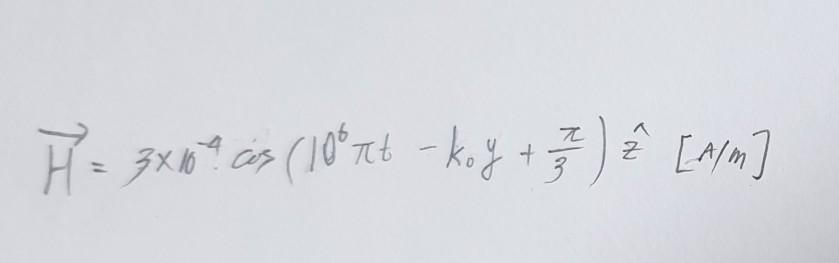 H⃗ = 3×10⁻⁴ cos (10⁶πt - k₀y + π/3) ẑ [A/m]